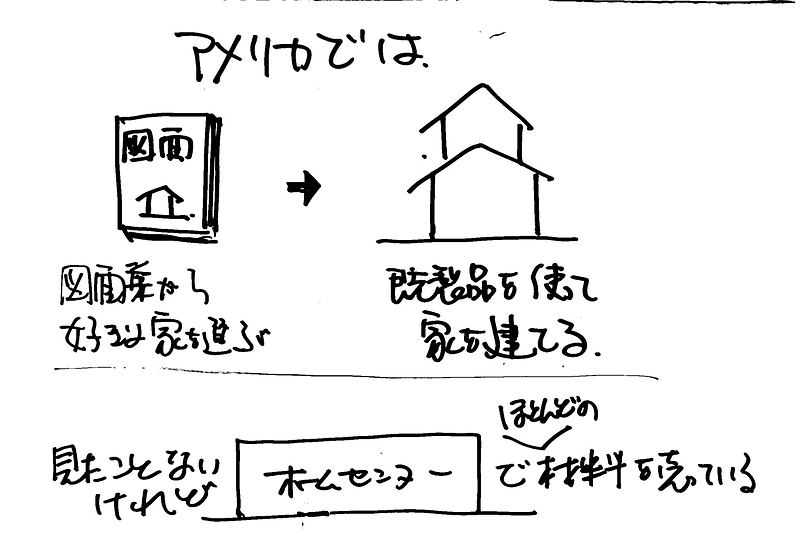 アメリカでは.
図面
図面集から
好きな家を選ぶ
既製品を使って
家を建てる.
見たことない
けれど
ホームセンター
ほとんどの
で材料を売っている